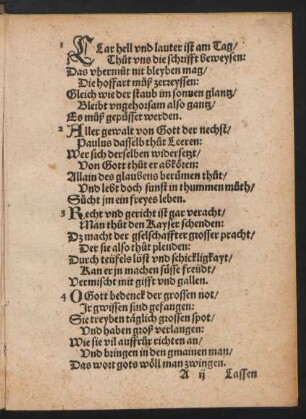 1 KLar hell vnd lauter ist am Tag/
Thůt vns die schrifft beweysen:
Das vbermůt nit bleyben mag/
Die hoffart můß zerreyssen:
Gleich wie der staub im sonnen glantz/
Bleibt vngehorsam also gantz/
Es můß gepüsset werden.
2 Aller gewalt von Gott der nechst/
Paulus dasselb thůt Leeren:
Wer sich derselben widersetzt/
Von Gott thůt er abkören:
Allain des glaubens berümen thůt/
Vnd leßt doch sunst in thummen můth/
Sücht jm ein freyes leben.
3 Recht vnd gericht ist gar veracht/
Man thůt den Kayser schenden:
Dz macht der gselschaffter grosser pracht/
Der sie also thůt plenden:
Durch teüfels lüst vnd schickligkayt/
Kan er jn machen süsse freüdt/
Vermischt mit gifft vnd gallen.
4 O Gott bedenck der grossen not/
Jr gwissen sind gefangen:
Sie treyben täglich grossen spot/
Vnd haben groß verlangen:
Wie sie vil auffrůr richten an/
Vnd bringen in den gmainen man/
Das wort gots wöll man zwingen.
A ij Lassen